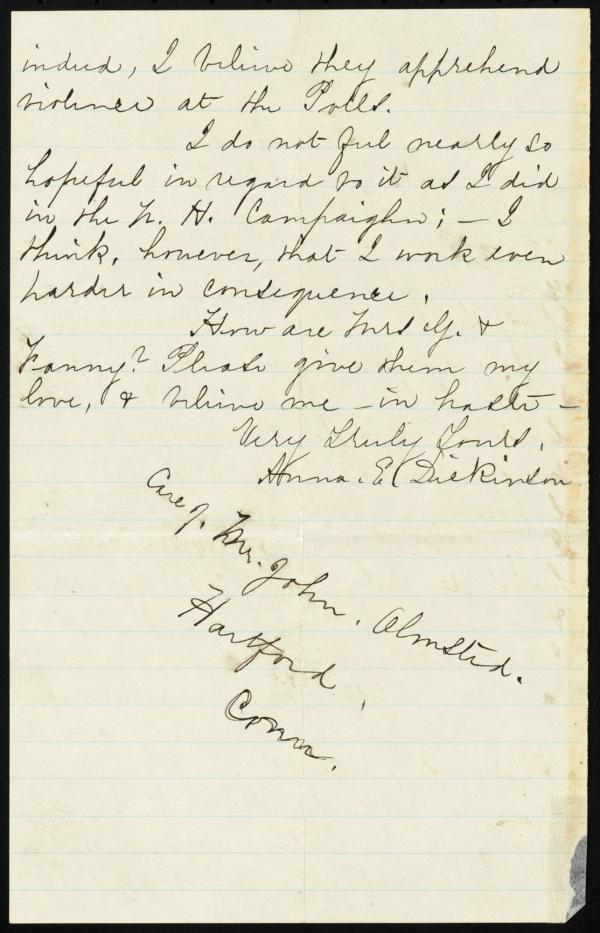 indeed, I believe they apprehend
violence at the Polls.
I do not feel nearly so
hopeful in regard to it as I did
in the N. H. Campaighn; – I
think, however, that I work even
harder in consequence.
How are Mrs G. &
Fanny? Please give them my
love, & believe me – in haste –
Very Truly Yours,
Anna. E. Dickinson
Care of. Mr. John. Olmsted.
Hartford,
Conn.